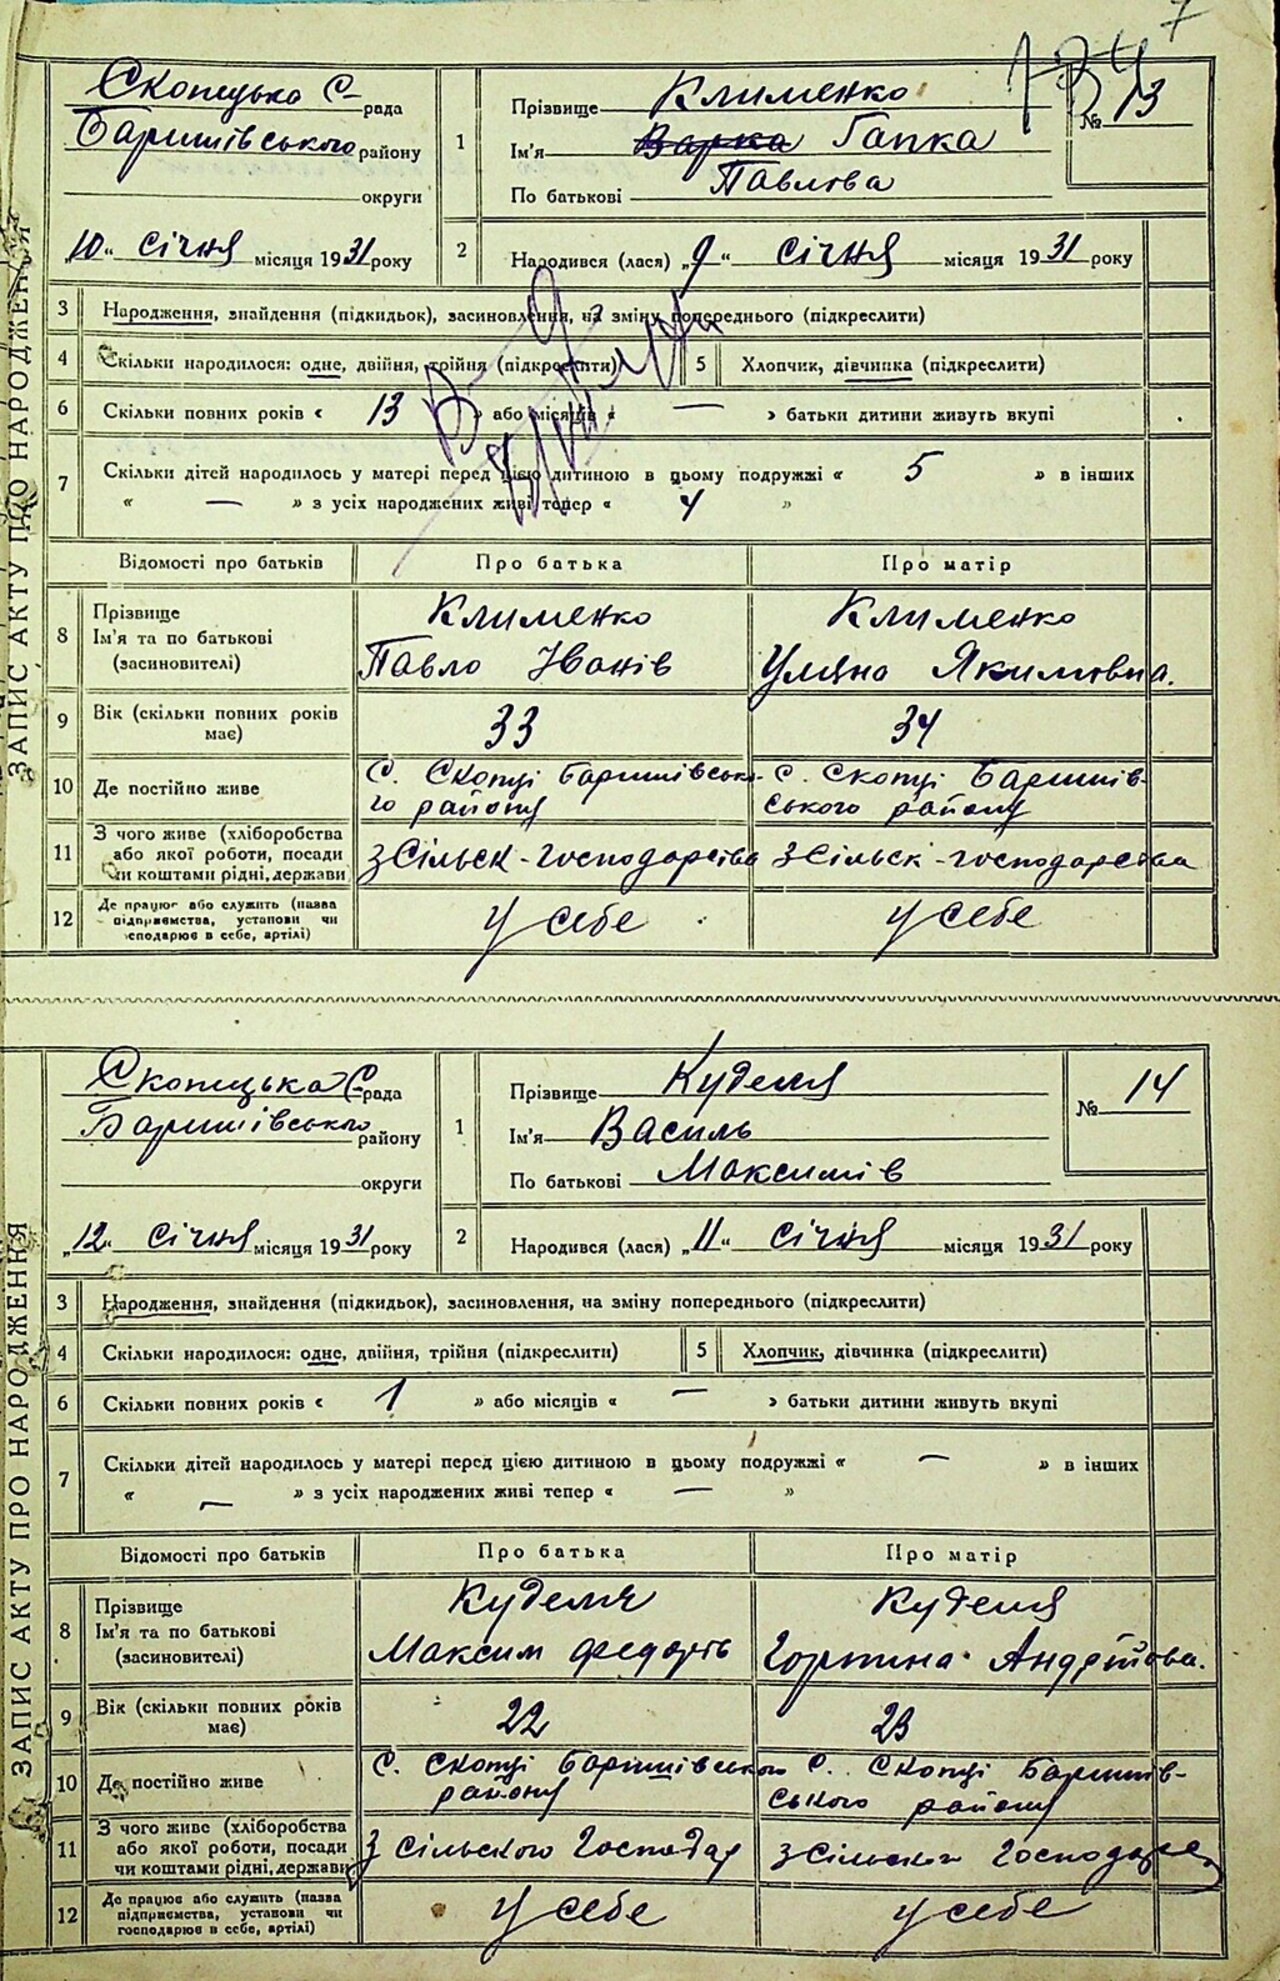 7
ЗАПИС АКТУ ПРО НАРОДЖЕННЯ
Скопецька С-рада
Баришівського району
округи
„10“ січня місяця 1931 року
1
Прізвище Клименко
Ім'я Варка Гапка
По батькові Павлова
№ 13
2
Народився (лася) „9“ січня місяця 1931 року
3 Народження, знайдення (підкидьок), засиновлення, на зміну попереднього (підкреслити)
4 Скільки народилося: одне, двійня, трійня (підкреслити) 5 Хлопчик, дівчинка (підкреслити)
6 Скільки повних років « 13 » або місяців « — » батьки дитини живуть вкупі
7 Скільки дітей народилось у матері перед цією дитиною в цьому подружжі « 5 » в інших
« — » з усіх народжених живі тепер « 4 »
Відомості про батьків Про батька Про матір
8 Прізвище Клименко Клименко
Ім'я та по батькові Павло Іванів Уляна Якимовна.
(засиновителі)
9 Вік (скільки повних років має) 33 34
10 Де постійно живе С. Скопці Баришівсько- С. Скопці Баришів-
го району ського району
11 З чого живе (хліборобства
або якої роботи, посади з Сільск-господарства з Сільск-господарства
чи коштами рідні, держави
12 Де працює або служить (назва
підприємства, установи чи у себе у себе
сподарює в себе, артілі)
ЗАПИС АКТУ ПРО НАРОДЖЕННЯ
Скопецька С-рада
Баришівського району
округи
„12“ січня місяця 1931 року
1
Прізвище Куделя
Ім'я Василь
По батькові Максимів
№ 14
2
Народився (лася) „11“ січня місяця 1931 року
3 Народження, знайдення (підкидьок), засиновлення, на зміну попереднього (підкреслити)
4 Скільки народилося: одне, двійня, трійня (підкреслити) 5 Хлопчик, дівчинка (підкреслити)
6 Скільки повних років « 1 » або місяців « — » батьки дитини живуть вкупі
7 Скільки дітей народилось у матері перед цією дитиною в цьому подружжі « — » в інших
« — » з усіх народжених живі тепер « — »
Відомості про батьків Про батька Про матір
8 Прізвище Куделя Куделя
Ім'я та по батькові Максим Федорів Горпина Андрійова.
(засиновителі)
9 Вік (скільки повних років має) 22 23
10 Де постійно живе С. Скопці Баришівського С. Скопці Баришів-
району ського району
11 З чого живе (хліборобства
або якої роботи, посади З Сільського Господар з Сільського Господаре
чи коштами рідні, держави
12 Де працює або служить (назва
підприємства, установи чи у себе у себе
господарює в себе, артілі)